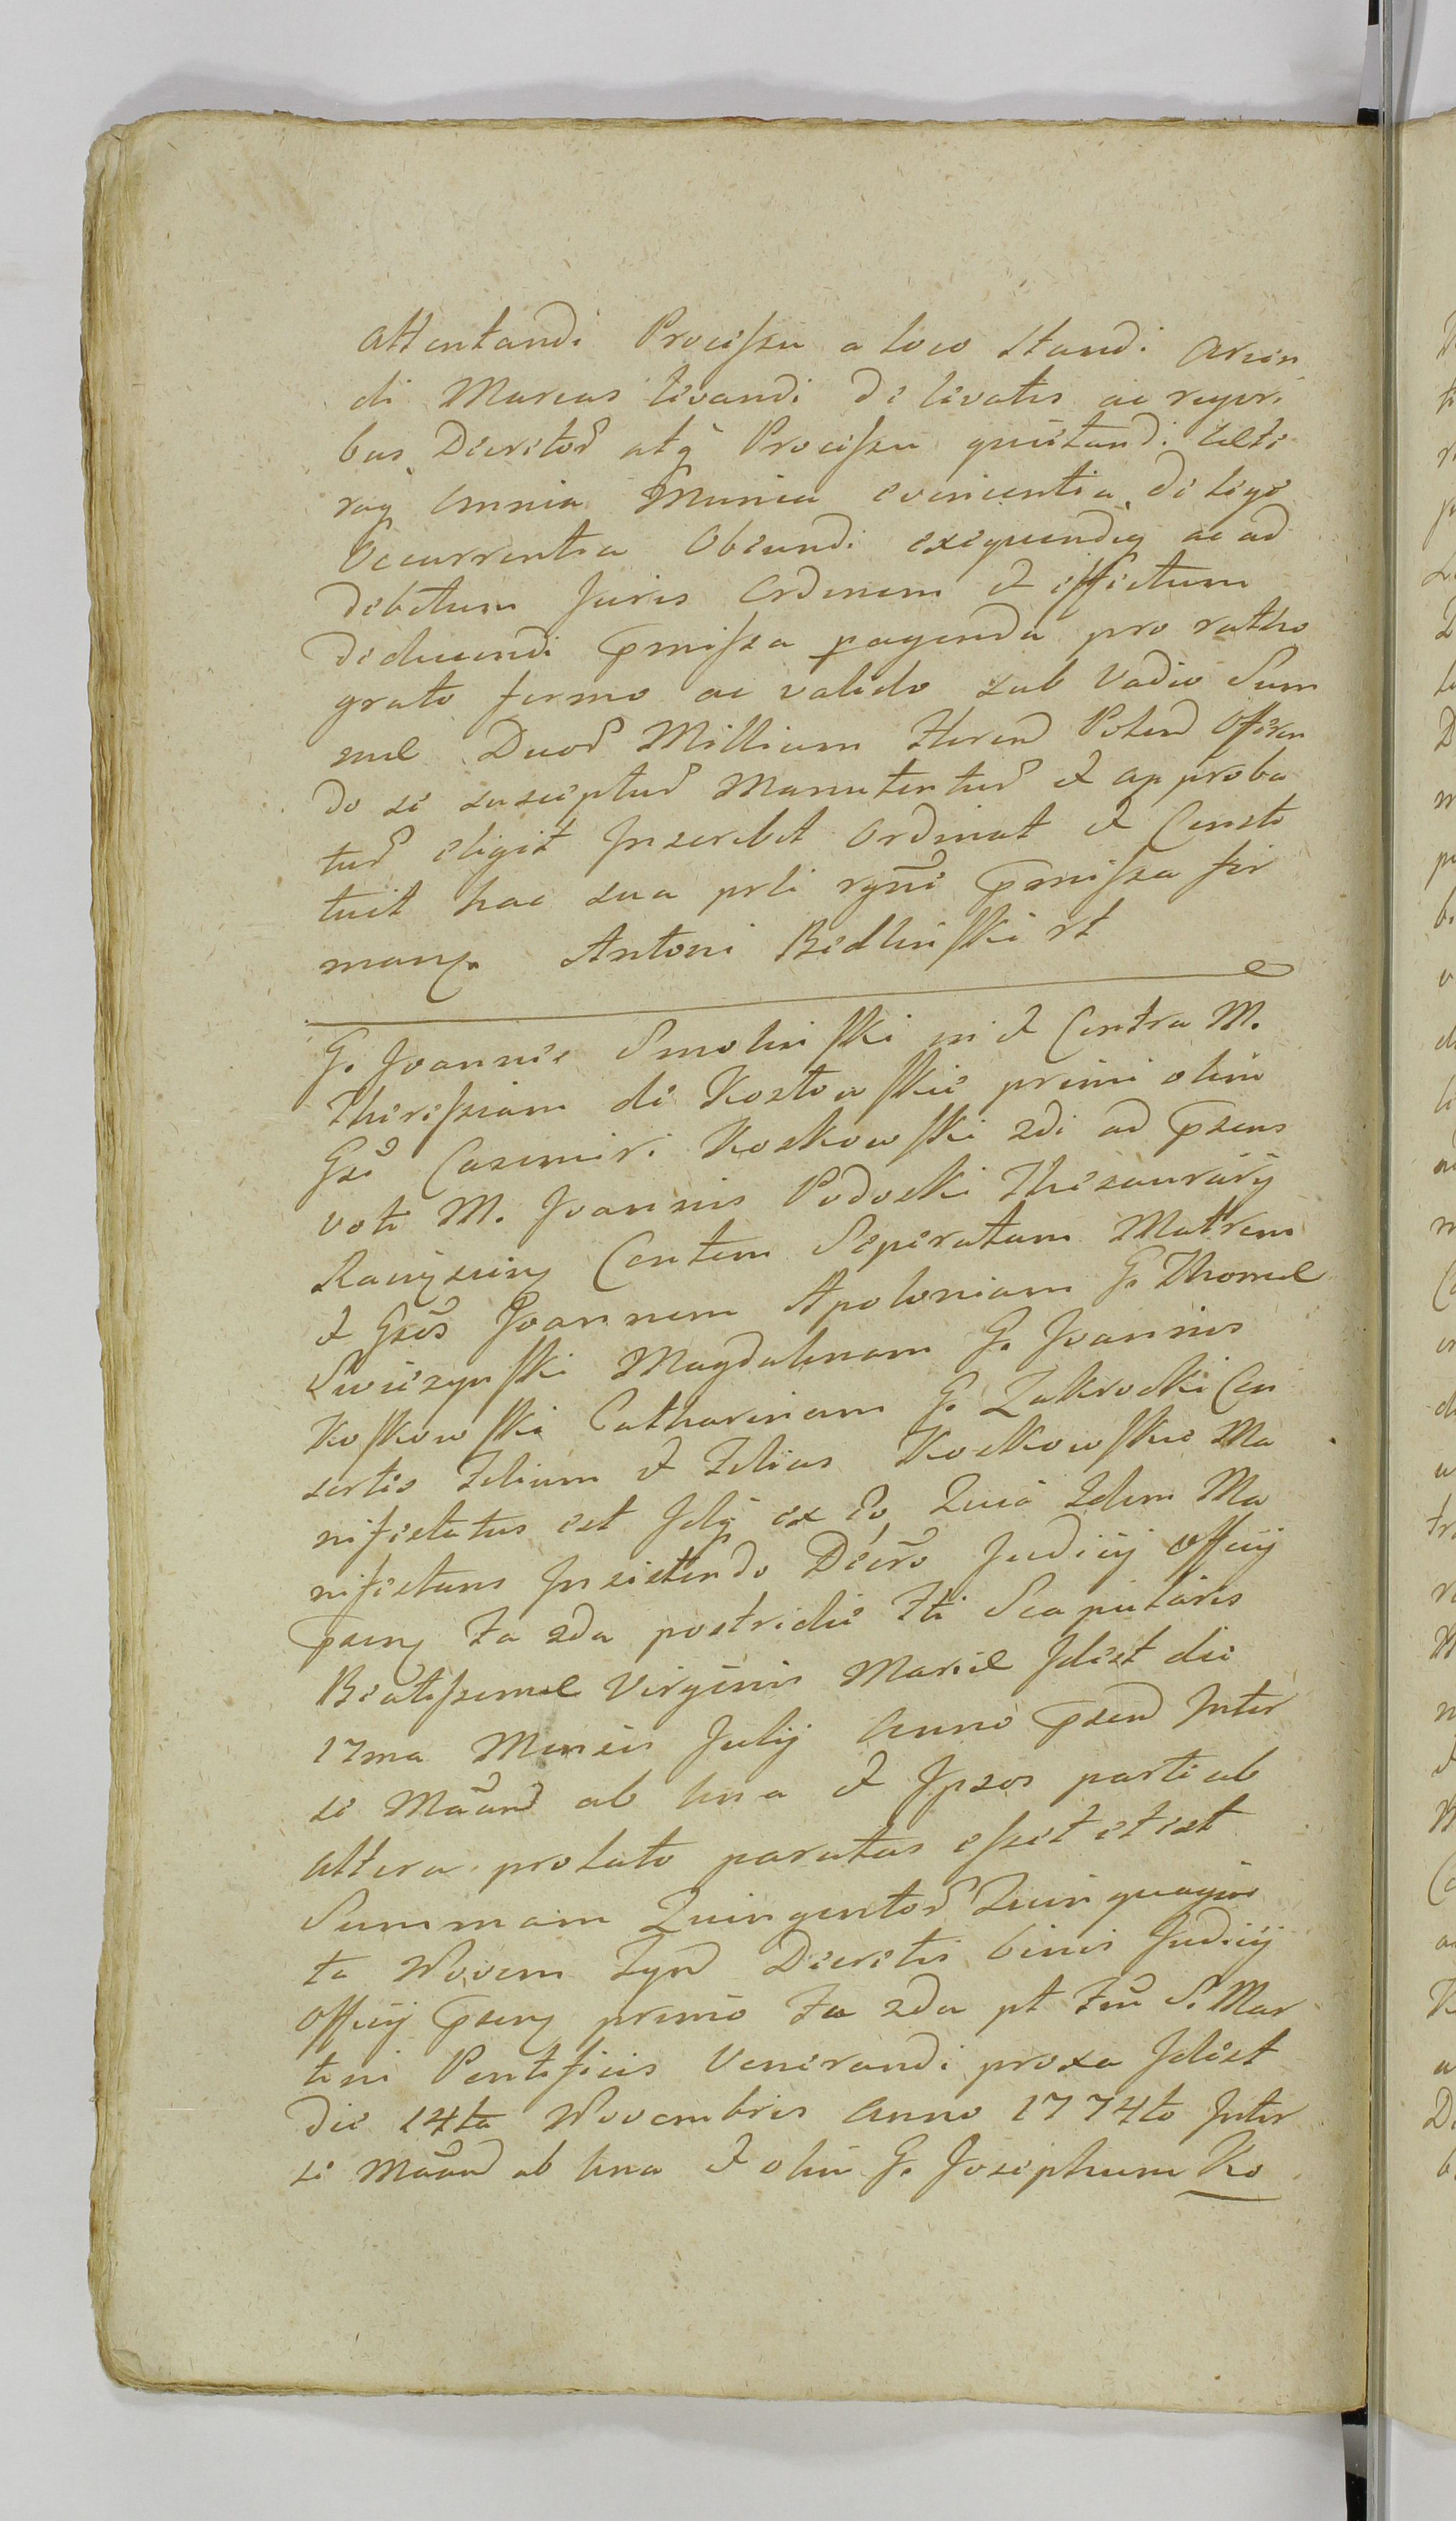 attentandi Processu a loco standi arcen
di Marcas levandi de levatis ac reperi
bus Decretor atq Processu quietandi Ulte
raq Omnia Munia evenientia de lege
Occurrentia Obeundi exequendiq ac ad
debitum Juris Ordinem et effectum
deducendi pmissa pagenda pro ratho
grato firmo ac valido sub Vadio Sum
mæ Duor Millium Floren Polon Offeren
do se suscepturu Manutenturu et approba
turu eligit Inscribit Ordinat et Consti
tuit hac sua prli rgni pmissa fir
mans Antoni Bedliński rt
G. Joannes Smoliński in et Contra M.
Theressiam de Kozłowskie primi olim
Gsi Casimiri Koskowski 2di ad psens
voti M. Joannis Podoski Thesaurarij
Rawsciens Contem Seperatam Matrem
et Gsos Joannem Apoloniam G. Thomæ
Swieszynski Magdalenam G. Joannis
Koskowski Catharinam G. Zakrocki Con
sortes Filium et Filias Koskowskie Ma
nifestatus est Idq ex Eo, Quia Idem Ma
nifestans Insistendo Decro Judicij Officij
psens Fa 2da postridie Fti Scapularis
Beatissimæ Virginis Mariæ Idest die
17ma Mensis Julij Anno psen Inter
se Maan ab Una et Ipsos parte ab
altera prolato paratus esset et est
Summam Quingentor Quinquagin
ta Novem Fpn Decretis binis Judicij
Officij psens primo Fa 2da pt Fm S. Mar
tini Pontificis Venerandi proxa Idest
die 14ta Novembris Anno 1774to Inter
se Maan ab Una et olim G. Josephum Ko